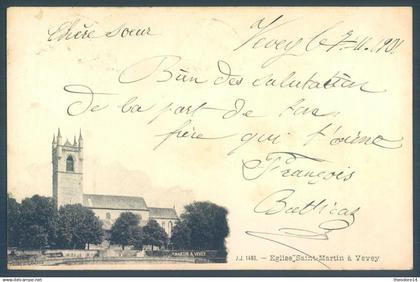 Chère sœur
Vevey le 9. 11. 1901
Bien des salutations
de la part de ton
frère qui t'aime
François
ST MARTIN À VEVEY
J.J. 1493. — Eglise Saint-Martin à Vevey
© theodore14